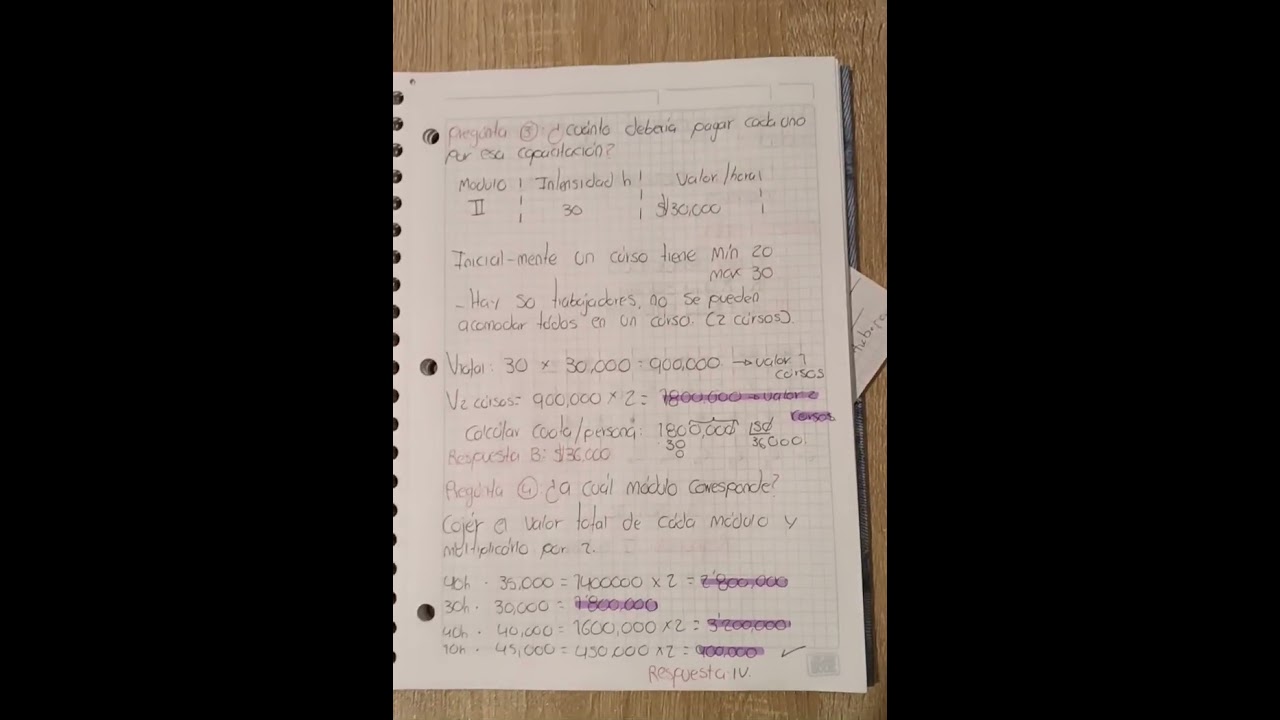 Pregunta ③: ¿cuánto debería pagar cada uno
por esa capacitación?
Modulo | Intensidad h | Valor/hora |
II | 30 | $130,000 |
Inicial-mente un curso tiene Min 20
max 30
- Hay 50 trabajadores, no se pueden
acomodar todos en un curso. (2 cursos).
Vtotal: 30 x 30,000 = 900,000 → valor 1
cursos
V2 cursos = 900,000 x 2 = 1800,000 → valor 2
cursos
Calcular cuota/persona: 1800,000 |50
30 36000
0
Respuesta B: $136,000
Pregunta ④: ¿a cuál módulo corresponde?
Cojer el valor total de cada módulo y
multiplicarlo por 2.
40h · 35,000 = 1400000 x 2 = 2'800,000
30h · 30,000 = 1'800,000
40h · 40,000 = 1600,000 x 2 = 3'200,000
10h · 45,000 = 450,000 x 2 = 900,000 ✓
Respuesta IV.